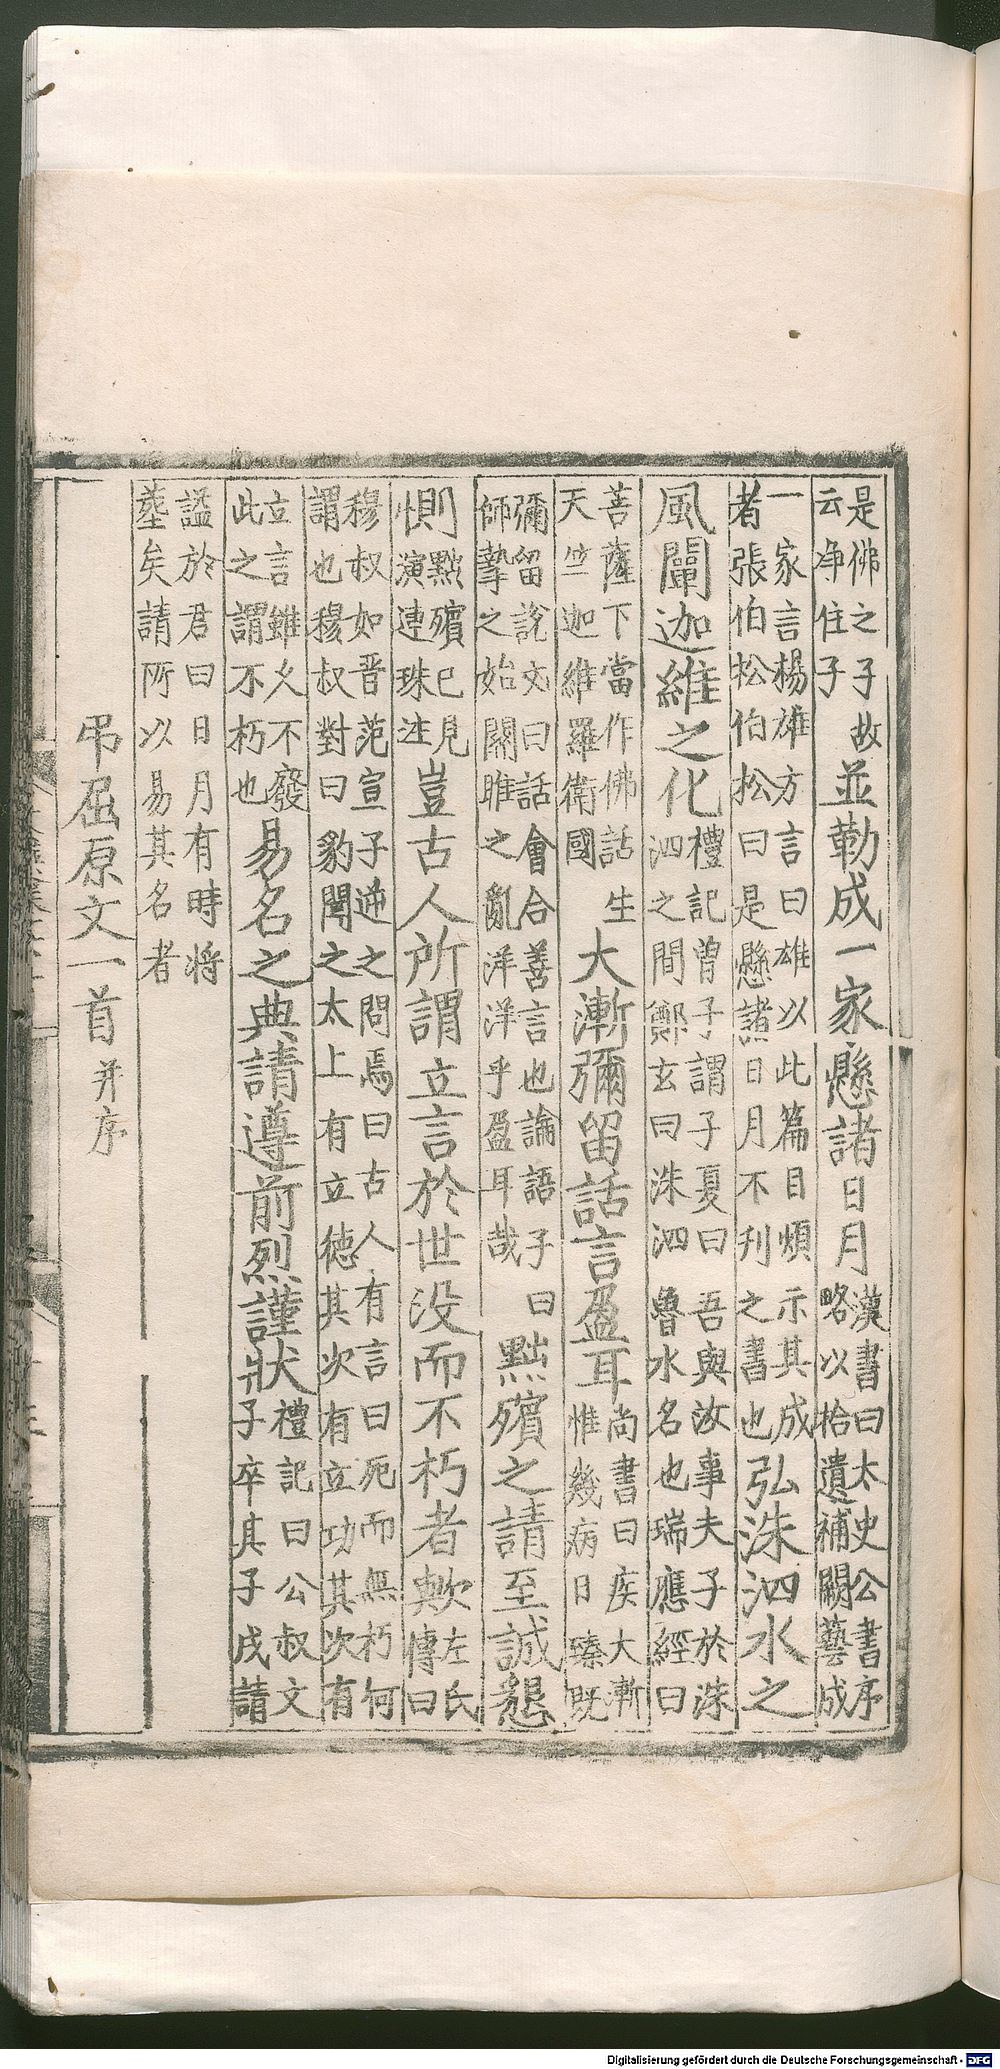 是佛之子故
云净住子
並勒成一家懸諸日月
漢書曰太史公書序
略以拾遺補闕藝成
一家言楊雄方言曰雄以此篇目煩示其成
者張伯松伯松曰是懸諸日月不刋之書也
弘洙泗水之
風闡迦維之化
禮記曾子謂子夏曰吾與汝事夫子於洙
泗之間鄭玄曰洙泗魯水名也瑞應經曰
菩薩下當作佛託生
天竺迦維羅衛國
大漸彌留話言盈耳
尚書曰疾大漸
惟幾病日臻既
彌留說文曰話會合善言也論語子曰
師摯之始關雎之亂洋洋乎盈耳哉
黜殯之請至誠懇
惻
黜殯已見
演連珠注
豈古人所謂立言於世没而不朽者歟
左氏
傳曰
穆叔如晋范宣子逆之問焉曰古人有言曰死而無朽何
謂也穆叔對曰豹聞之太上有立德其次有立功其次有
立言雖久不廢
此之謂不朽也
易名之典請遵前烈謹狀
禮記曰公叔文
子卒其子戌請
謚於君曰日月有時将
塟矣請所以易其名者
弔屈原文一首并序
Digitalisierung gefördert durch die Deutsche Forschungsgemeinschaft - DFG